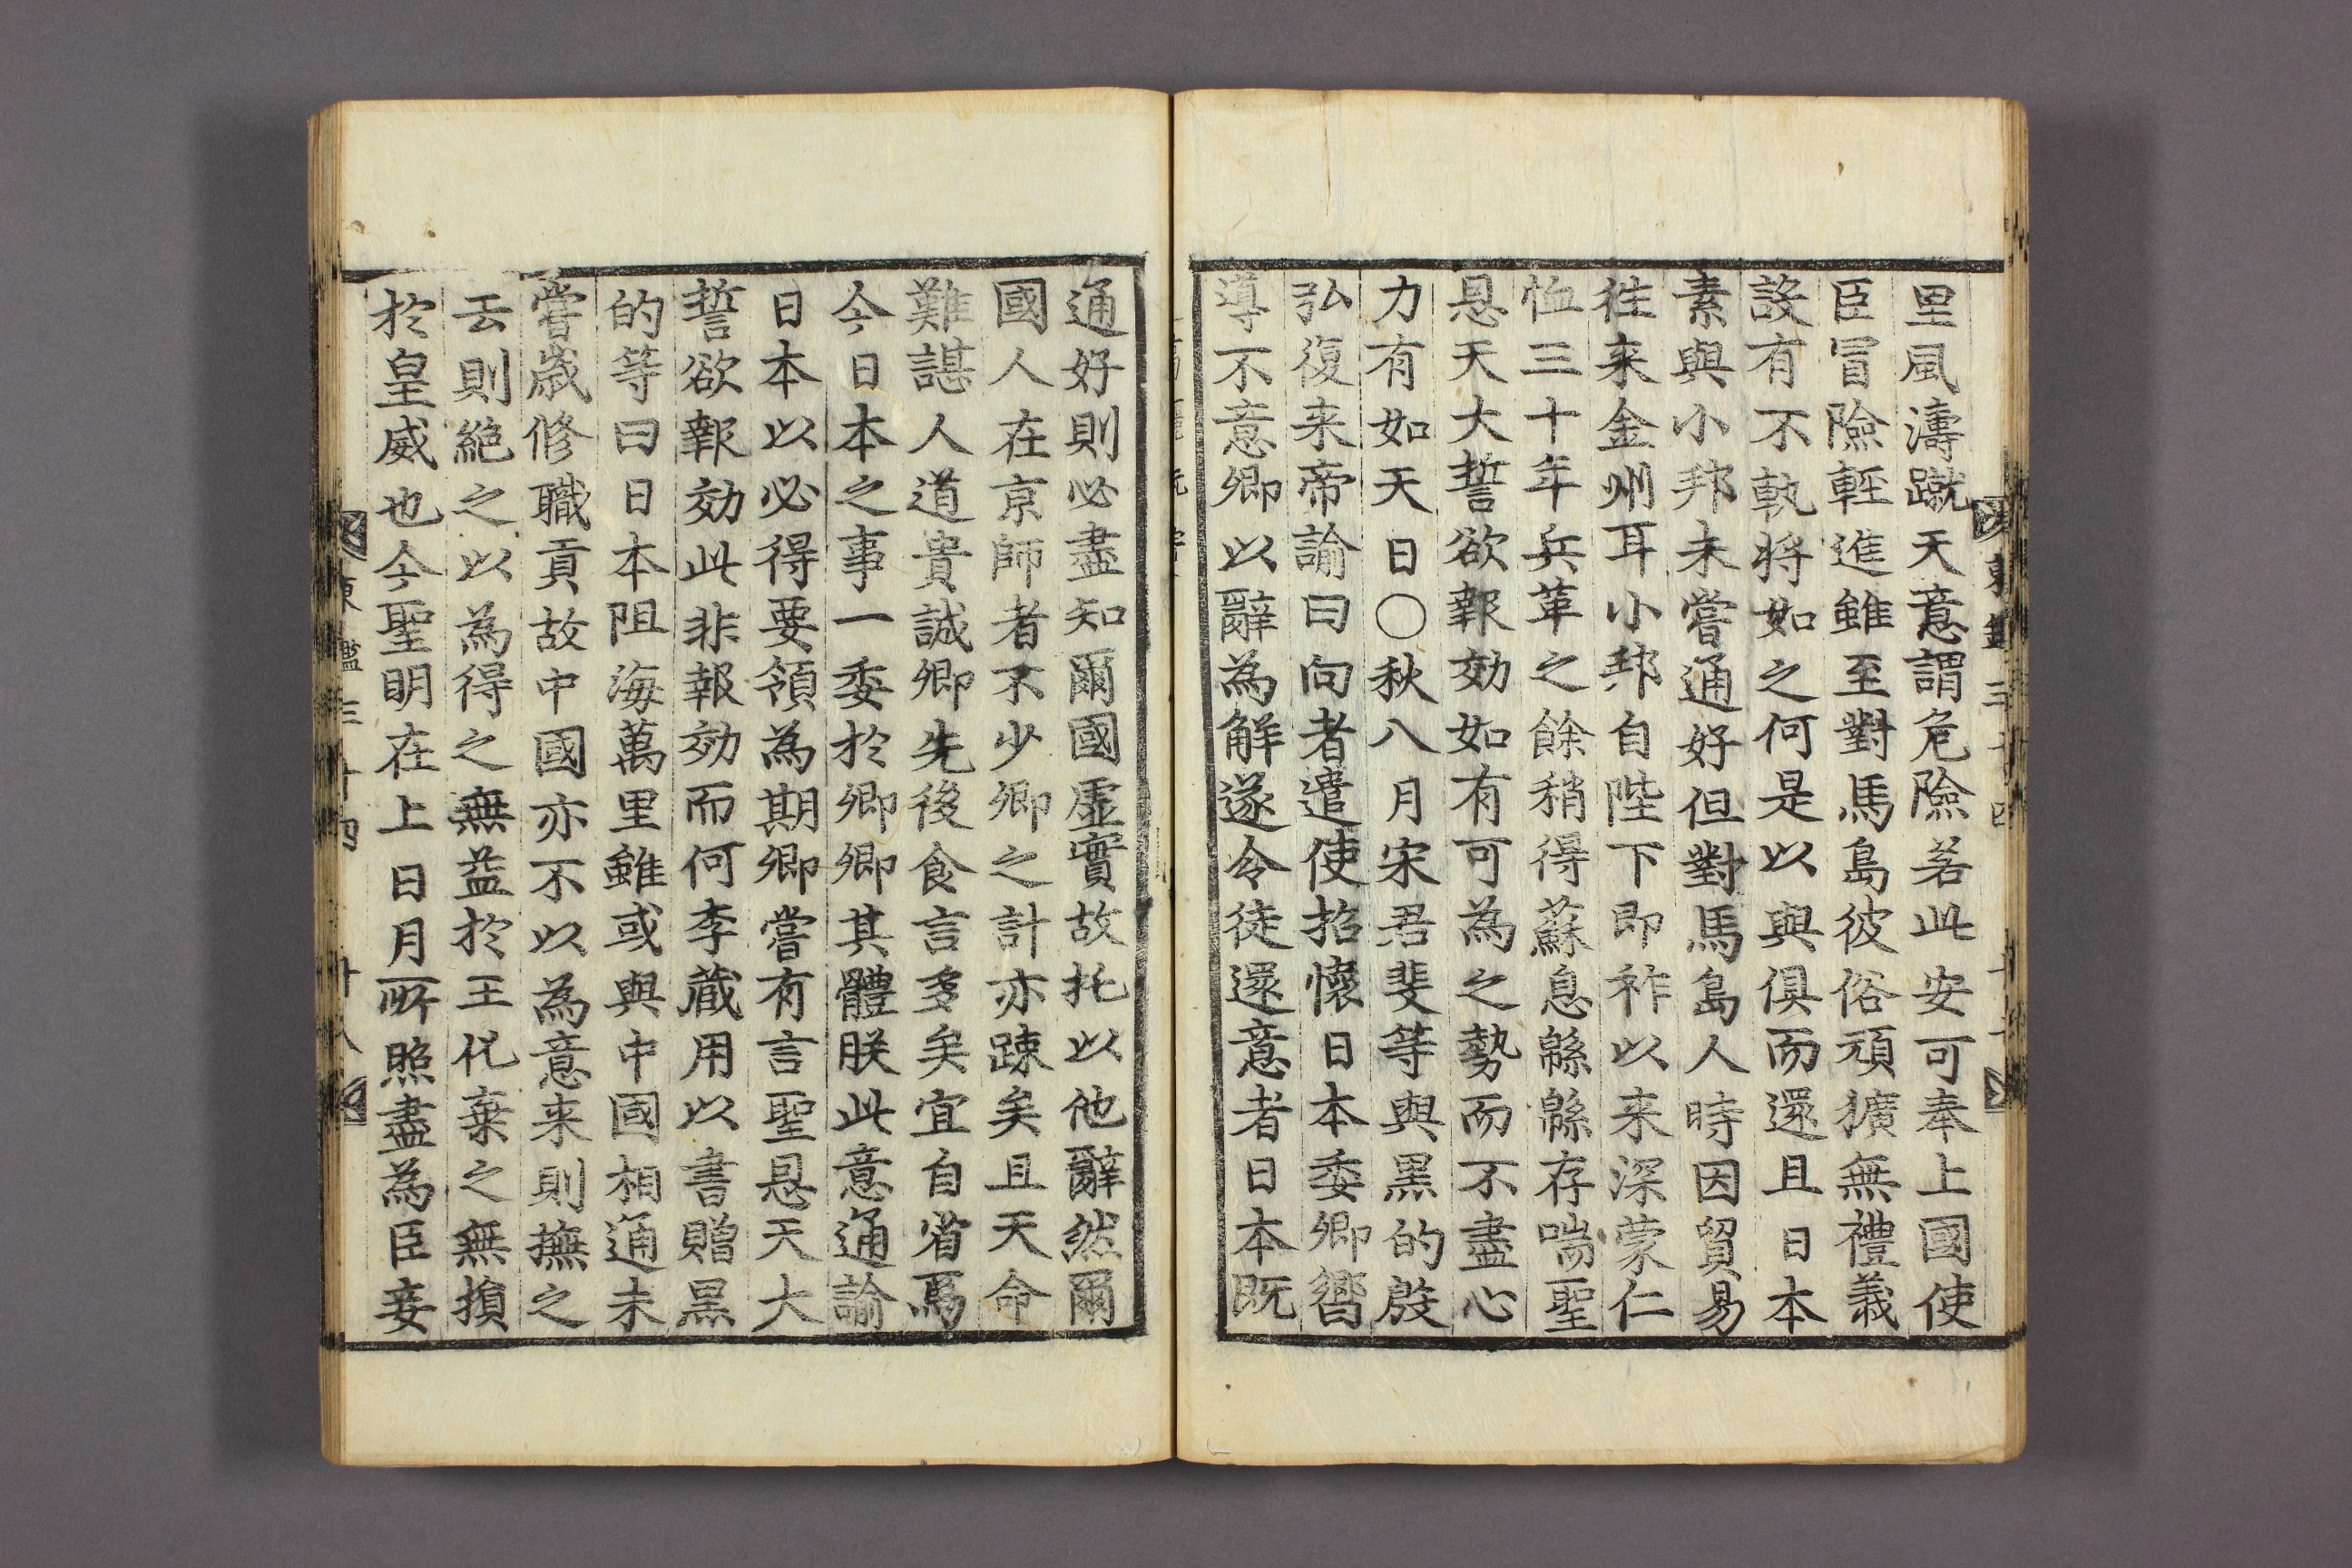 里風濤蹴天意謂危險若此安可奉上國使
臣冒險輕進雖至對馬島彼俗頑獷無禮義
設有不軌將如之何是以與俱而還且日本
素與小邦未嘗通好但對馬島人時因貿易
徃来金州耳小邦自陛下即祚以来深蒙仁
恤三十年兵革之餘稍得蘇息緜緜存喘聖
恩天大誓欲報効如有可為之勢而不盡心
力有如天日〇秋八月宋君斐等與黑的殷
弘復来帝諭曰向者遣使招懷日本委卿嚮
導不意卿以辭為解遂令徒還意者日本既
通好則必盡知爾國虛實故托以他辭然爾
國人在京師者不少卿之計亦踈矣且天命
難諶人道貴誠卿先後食言多矣宜自省焉
今日本之事一委於卿卿其體朕此意通諭
日本以必得要領為期卿嘗有言聖恩天大
誓欲報効此非報効而何李蔵用以書贈黑
的等曰日本阻海萬里雖或與中國相通未
嘗歲修職貢故中國亦不以為意来則撫之
去則絶之以為得之無益於王化棄之無損
於皇威也今聖明在上日月所照盡為臣妾
東鑑三十四 十八